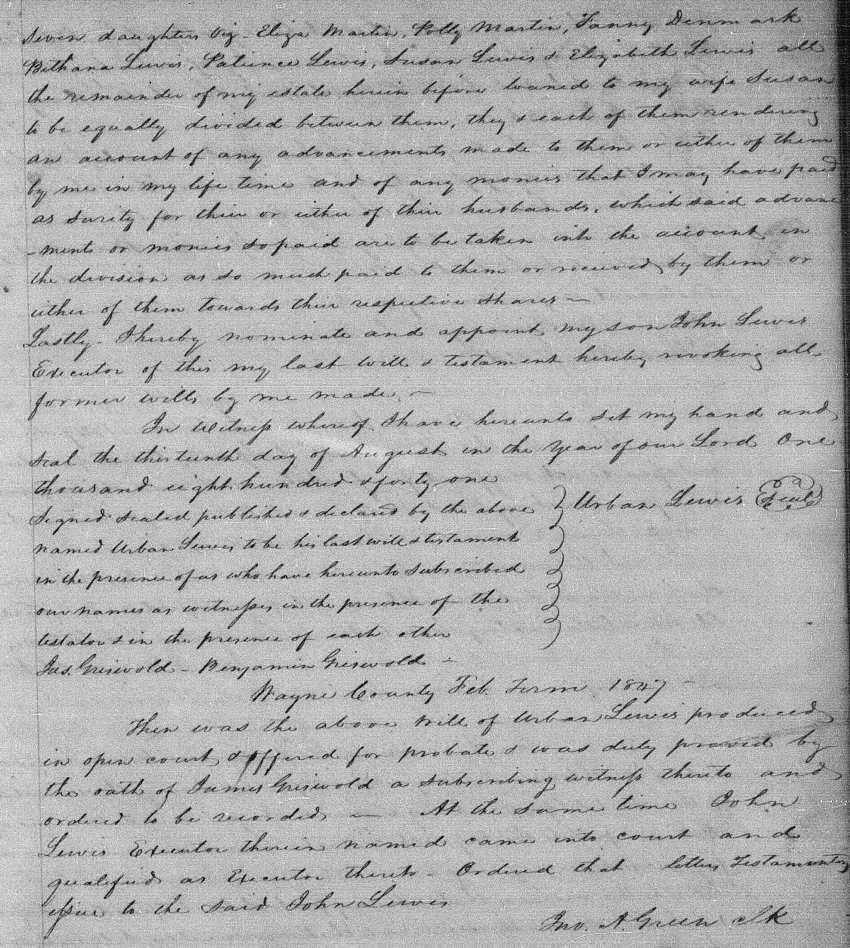 Seven daughters viz - Eliza Martin, Polly Martin, Fanny Denmark
Bethana Lewis, Patience Lewis, Susan Lewis & Elizabeth Lewis all
the remainder of my estate herein before loaned to my wife Susan
to be equally divided between them, they & each of them rendering
an account of any advancements made to them or either of them
by me in my life time and of any monies that I may have paid
as surity for their or either of their husbands, which said advance
-ments or monies so paid are to be taken into the account in
the division as so much paid to them or received by them or
either of them towards their respective shares -
Lastly - I hereby nominate and appoint my son John Lewis
Executor of this my last will & testament hereby revoking all
former wills by me made. -
In witness whereof I have hereunto set my hand and
seal the thirteenth day of August in the year of our Lord One
thousand eight hundred & forty one
Signed sealed published & declared by the above
named Urban Lewis to be his last will & testament
in the presence of us who have hereunto subscribed
our names as witnesses in the presence of the
testator & in the presence of each other
Urban Lewis (Seal)
Jas. Griswold - Benjamin Griswold -
Wayne County Feb. Term 1847 -
Then was the above will of Urban Lewis produced
in open court & offered for probate & was duly proved by
the oath of James Griswold a subscribing witness thereto and
ordered to be recorded - At the same time John
Lewis Executor therein named came into court and
qualified as Executor thereto - Ordered that letters Testamentary
issue to the said John Lewis
Jno. A. Green Clk